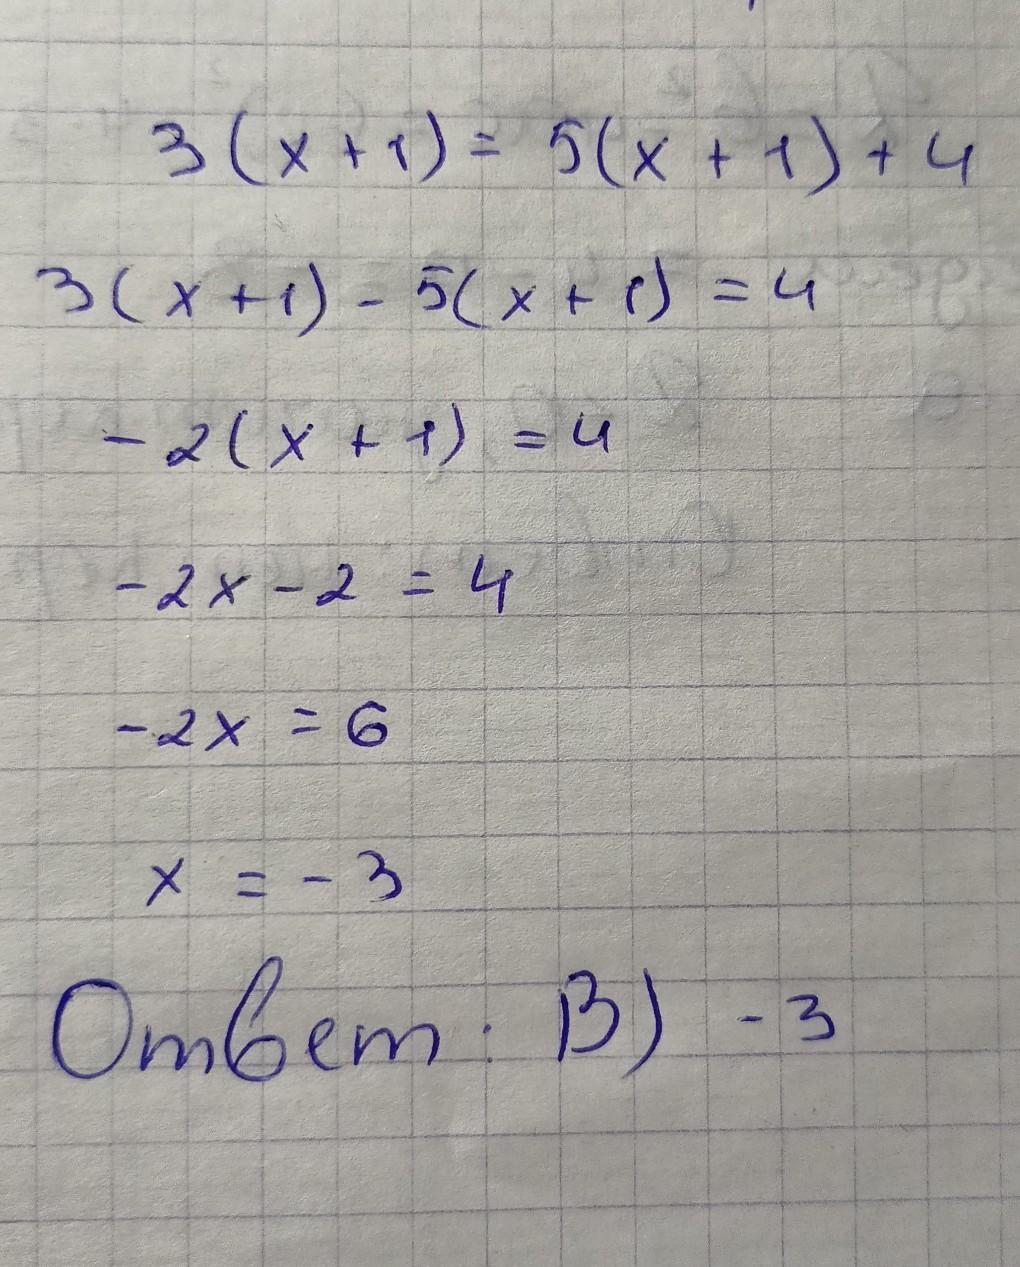 3(x+1) = 5(x+1)+4
3(x+1) - 5(x+1) = 4
-2(x+1) = 4
-2x - 2 = 4
-2x = 6
x = -3
Ответ: В) -3